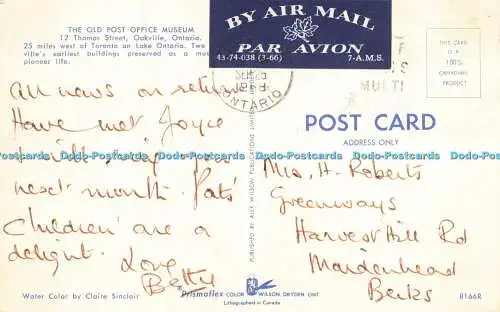 THE OLD POST OFFICE MUSEUM
12 Thomas Street, Oakville, Ontario.
25 miles west of Toronto on Lake Ontario. Two
ville's earliest buildings preserved as a
pioneer life.
BY AIR MAIL
PAR AVION
43-74-038 (3-66) 7-A.M.S.
ONTARIO
MULTI
THIS CARD IS
A
100%
CANADIAN
PRODUCT
All news on return
Have met Joyce
next month. Pats'
children are a
delight.
Love
Betty
POST CARD
ADDRESS ONLY
Mrs. H. Roberts
Greenways
Harvest Hill Rd
Maidenhead
Berks
Dodo-Postcards Dodo-Postcards Dodo-Postcards Dodo-Postcards Dodo-Postcards
PUBLISHED BY ALEX WILSON PUBLICATIONS
Water Color by Claire Sinclair
Prismaflex COLOR WILSON DRYDEN ONT
Lithographed in Canada
8166R